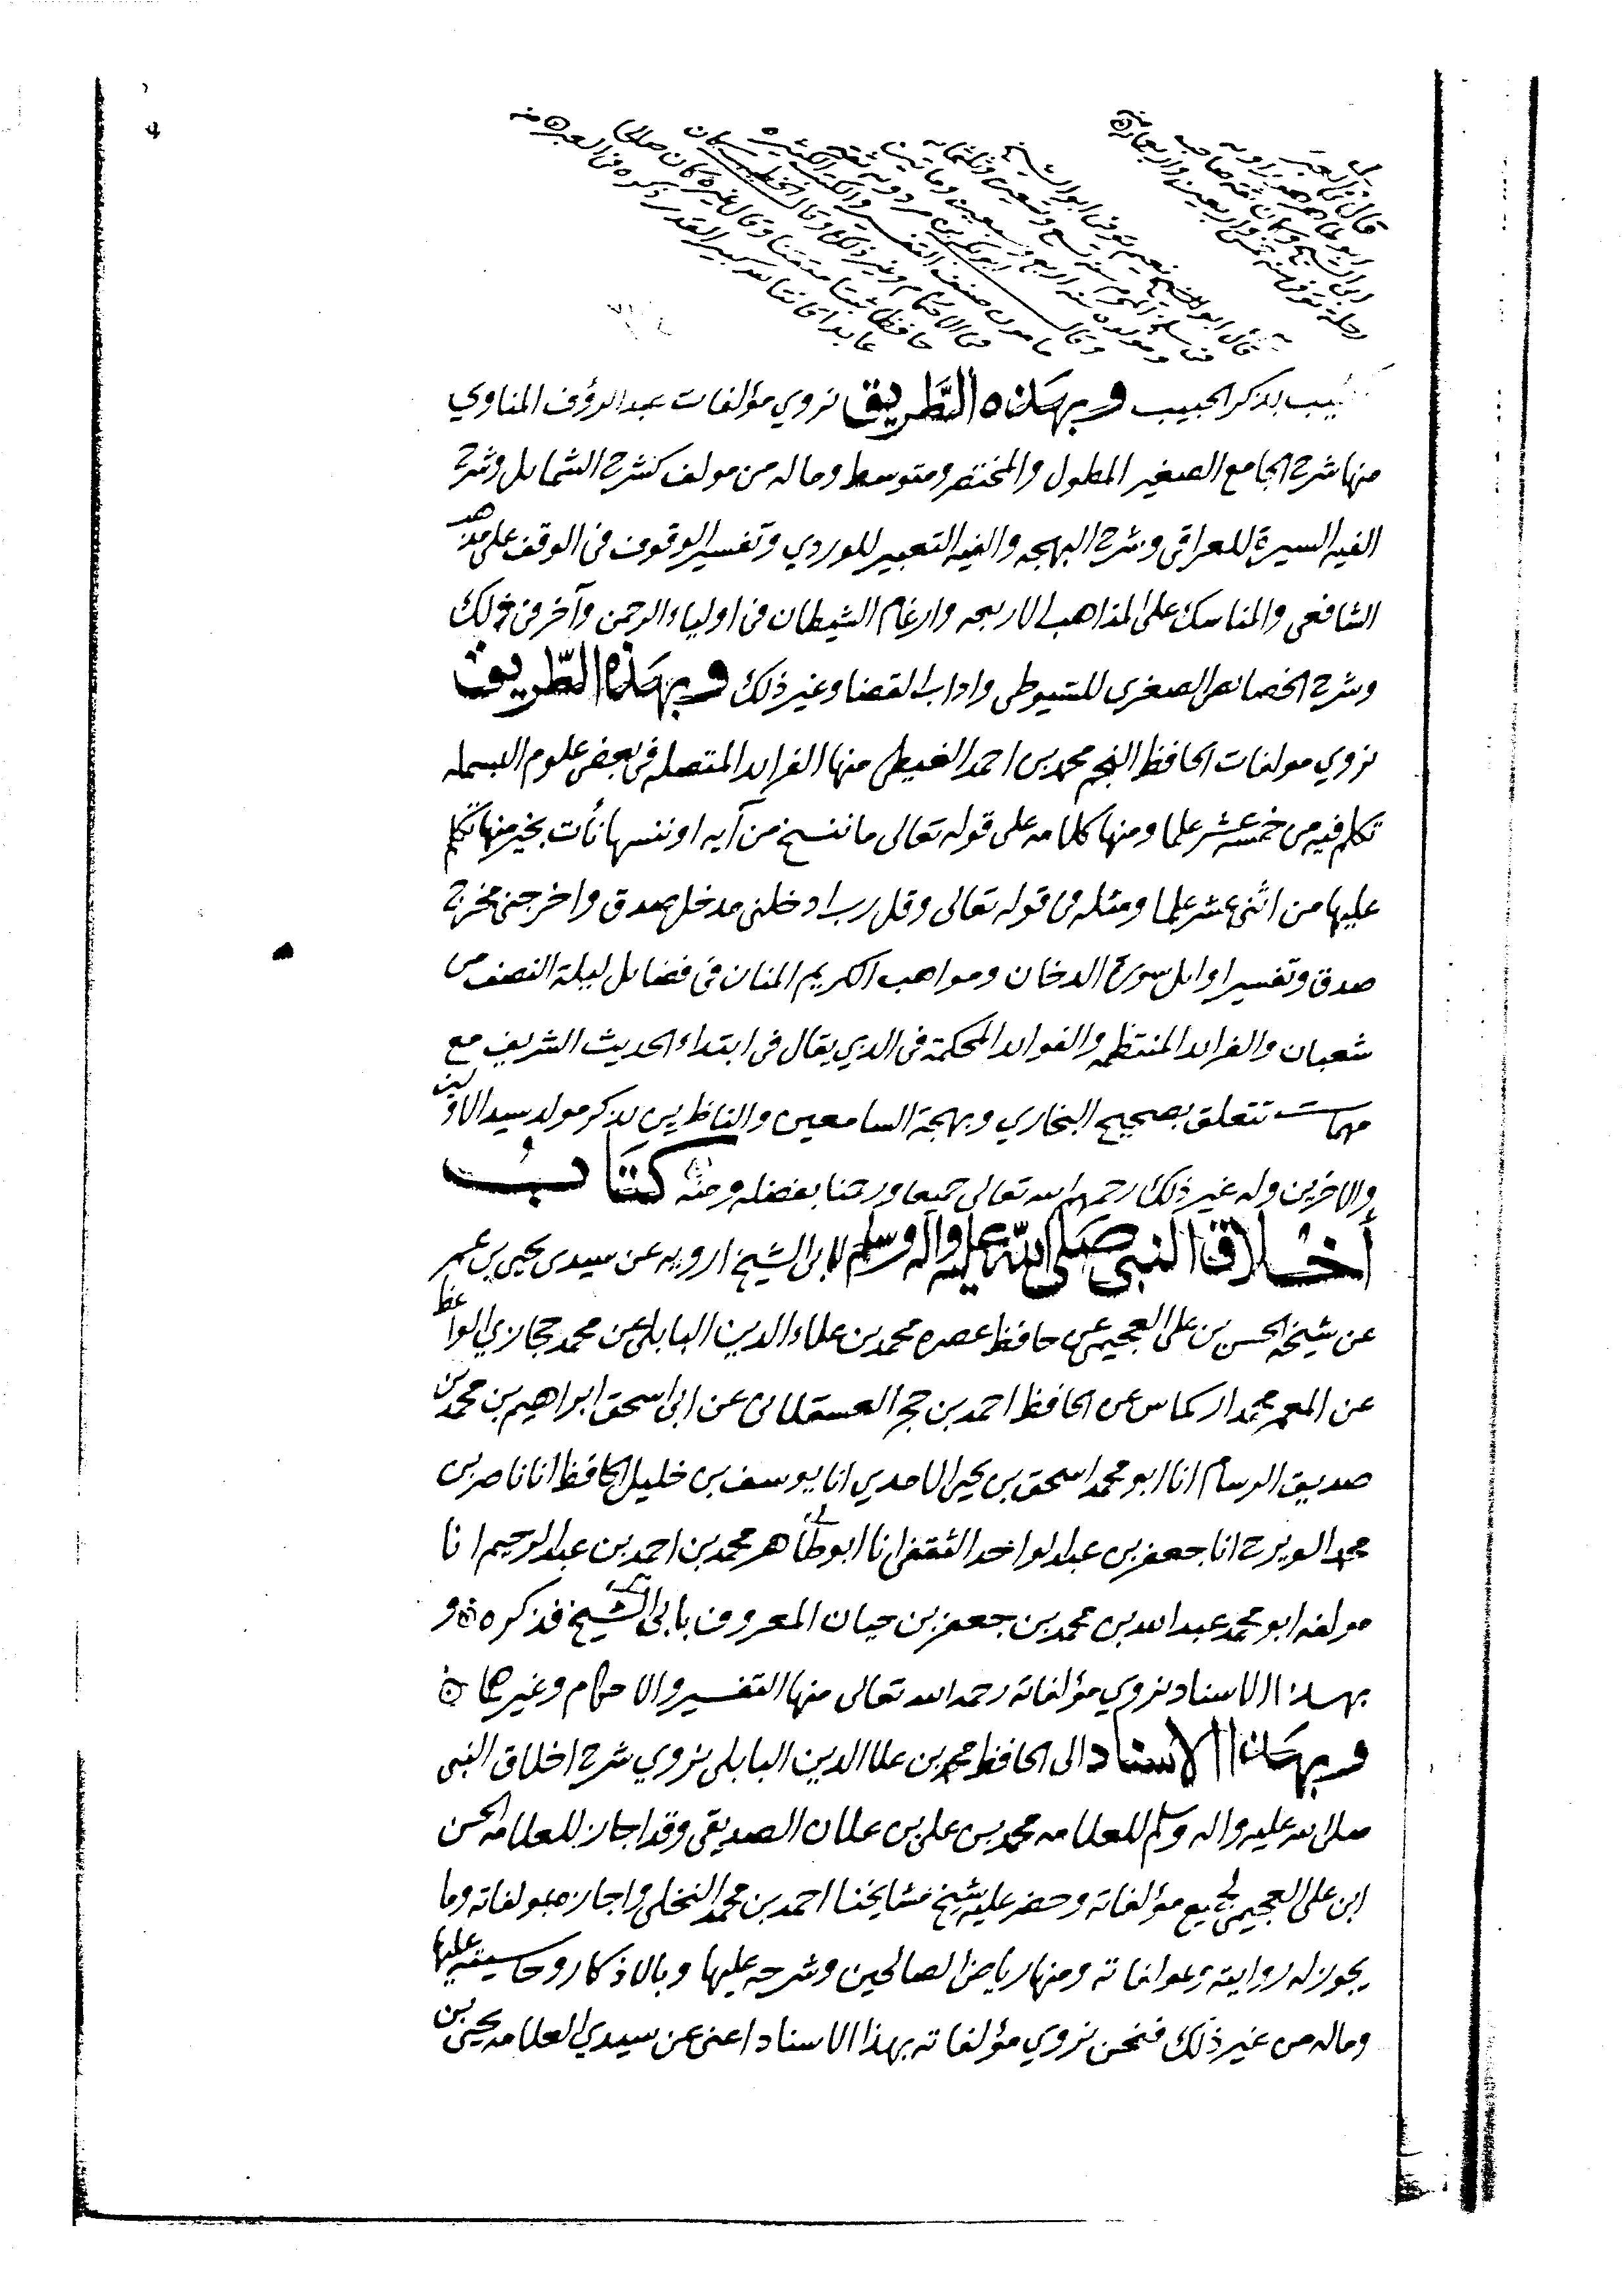 قال في العبر
ابو طاهر
ابن الشيخ وكان ثقة صاحب
رحلة توفي سنة خمس واربعين واربعمائة
قال ابو نعيم توفي ابو الشيخ
سلخ المحرم سنة تسع وستين وثلثمائه
ومولده سنة اربع وسبعين ومائتين
وقال ابو بكر بن مردويه ثقة
مامون صنف التفسير والكتب الكثيره
في الاحكام وغير ذلك وقال الخطيب كان
حافظا ثبتا متقنا وقال غيره كان صالحا
عابدا قانتا لله كبير القدر ذكره في العبر منه
بذكر الحبيب وبهذه الطَّريق نروي مؤلفات عبد الرؤف المناوي
منها شرح الجامع الصغير المطول والمختصر ومتوسط وماله من مولف كشرح الشمايل وشرح
الفيه السيرة للعراقي وشرح البهجه والفيه التعبير للوردي وتفسير الوقوف في الوقف على مذهب
الشافعي والمناسك على المذاهب الاربعه وارغام الشيطان في اولياء الرحمن وآخر في ذلك
وشرح الخصائص الصغري للسيوطي واداب القضا وغير ذلك وبهذه الطَّريق
نروي مولفات الحافظ النجم محمد بن احمد الغيطي منها الفرائد المتصله في بعض علوم البسمله
تكلم فيه من خمسة عشر علما ومنها كلامه على قوله تعالى ما ننسخ من آيه او ننسها نأت بخير منها تكلم
عليها من اثنى عشر علما ومثله في قوله تعالى وقل رب ادخلني مدخل صدق واخرجني مخرج
صدق وتفسير اوايل سورة الدخان ومواهب الكريم المنان في فضايل ليلة النصف من
شعبان والفرائد المنتظمه والفوائد المحكمة في الذي يقال في ابتداء الحديث الشريف مع
مهمات تتعلق بصحيح البخاري وبهجة السامعين والناظرين بذكر مولد سيد الاولين
والاخرين وله غير ذلك رحمهم الله تعالى جميعا ورحمنا بفضله ومنّه كتَابُ
أخلاق النبي صَلى اللّه عليه وآله وسلم لابى الشيخ ارويه عن سيدى يحيى بن عمر
عن شيخه الحسن بن على العجيمي عن حافظ عصره محمد بن علاء الدين البابلى عن محمد حجازي الواعظ
عن المعمر محمد اركماس عن الحافظ احمد بن حجر العسقلانى عن ابى اسحق ابراهيم بن محمد بن
صديق الرسام انا ابو محمد اسحق بن يحيى الامدي انا يوسف بن خليل الحافظ انا ناصر بن
محمد الويرح انا جعفر بن عبد الواحد الثقفي انا ابو طاهر محمد بن احمد بن عبد الرحيم انا
مولفه ابو محمد عبد الله بن محمد بن جعفر بن حيان المعروف بابى الشيخ فذكره و
بهذا الاسناد نروي مؤلفاته رحمه الله تعالى منها التفسير والاحكام وغيرهما
وبهذا الاسناد الى الحافظ محمد بن علا الدين البابلي نروي شرح اخلاق النبى
صلى الله عليه واله وسلم للعلامه محمد بن على بن علان الصديقى وقد اجاز للعلامه الحسن
ابن على العجيمي لجميع مؤلفاته وحضر عليه شيخ مشايخنا احمد بن محمد النخلى واجازه بمولفاته وما
يجوز له روايته ومولفاته ومنها رياض الصالحين وشرحه عليها وبالاذكار وحاشيته عليها
وماله من غير ذلك فنحن نروي مؤلفاته بهذا الاسناد اعنى عن سيدي العلامه يحيى بن